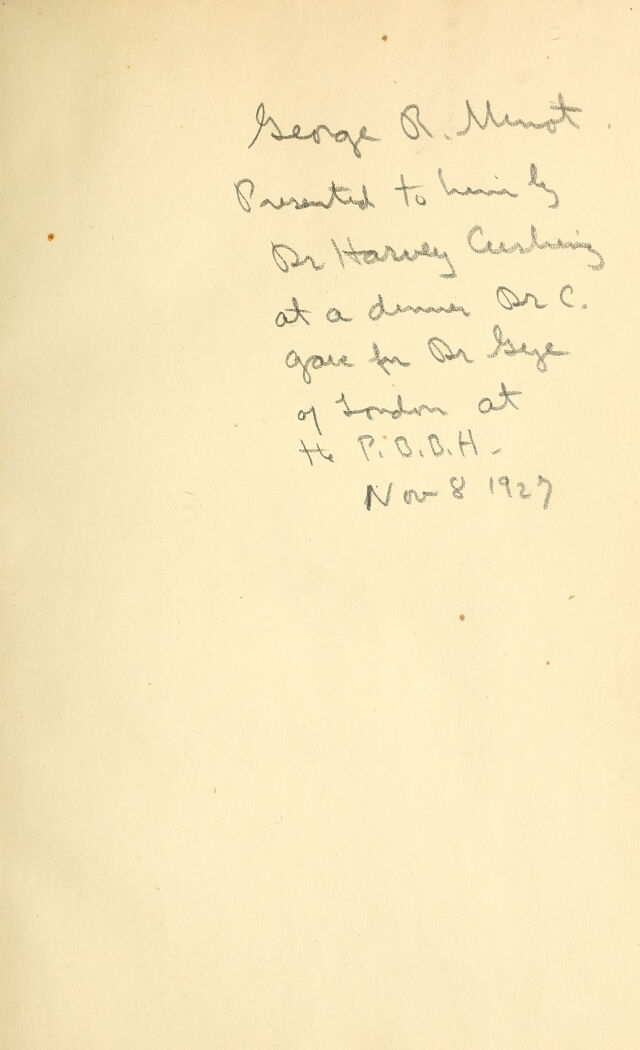 George R. Minot.
Presented to him by
Dr Harvey Cushing
at a dinner Dr C.
gave for Dr Gye
of London at
the P.B.B.H-
Nov 8 1927